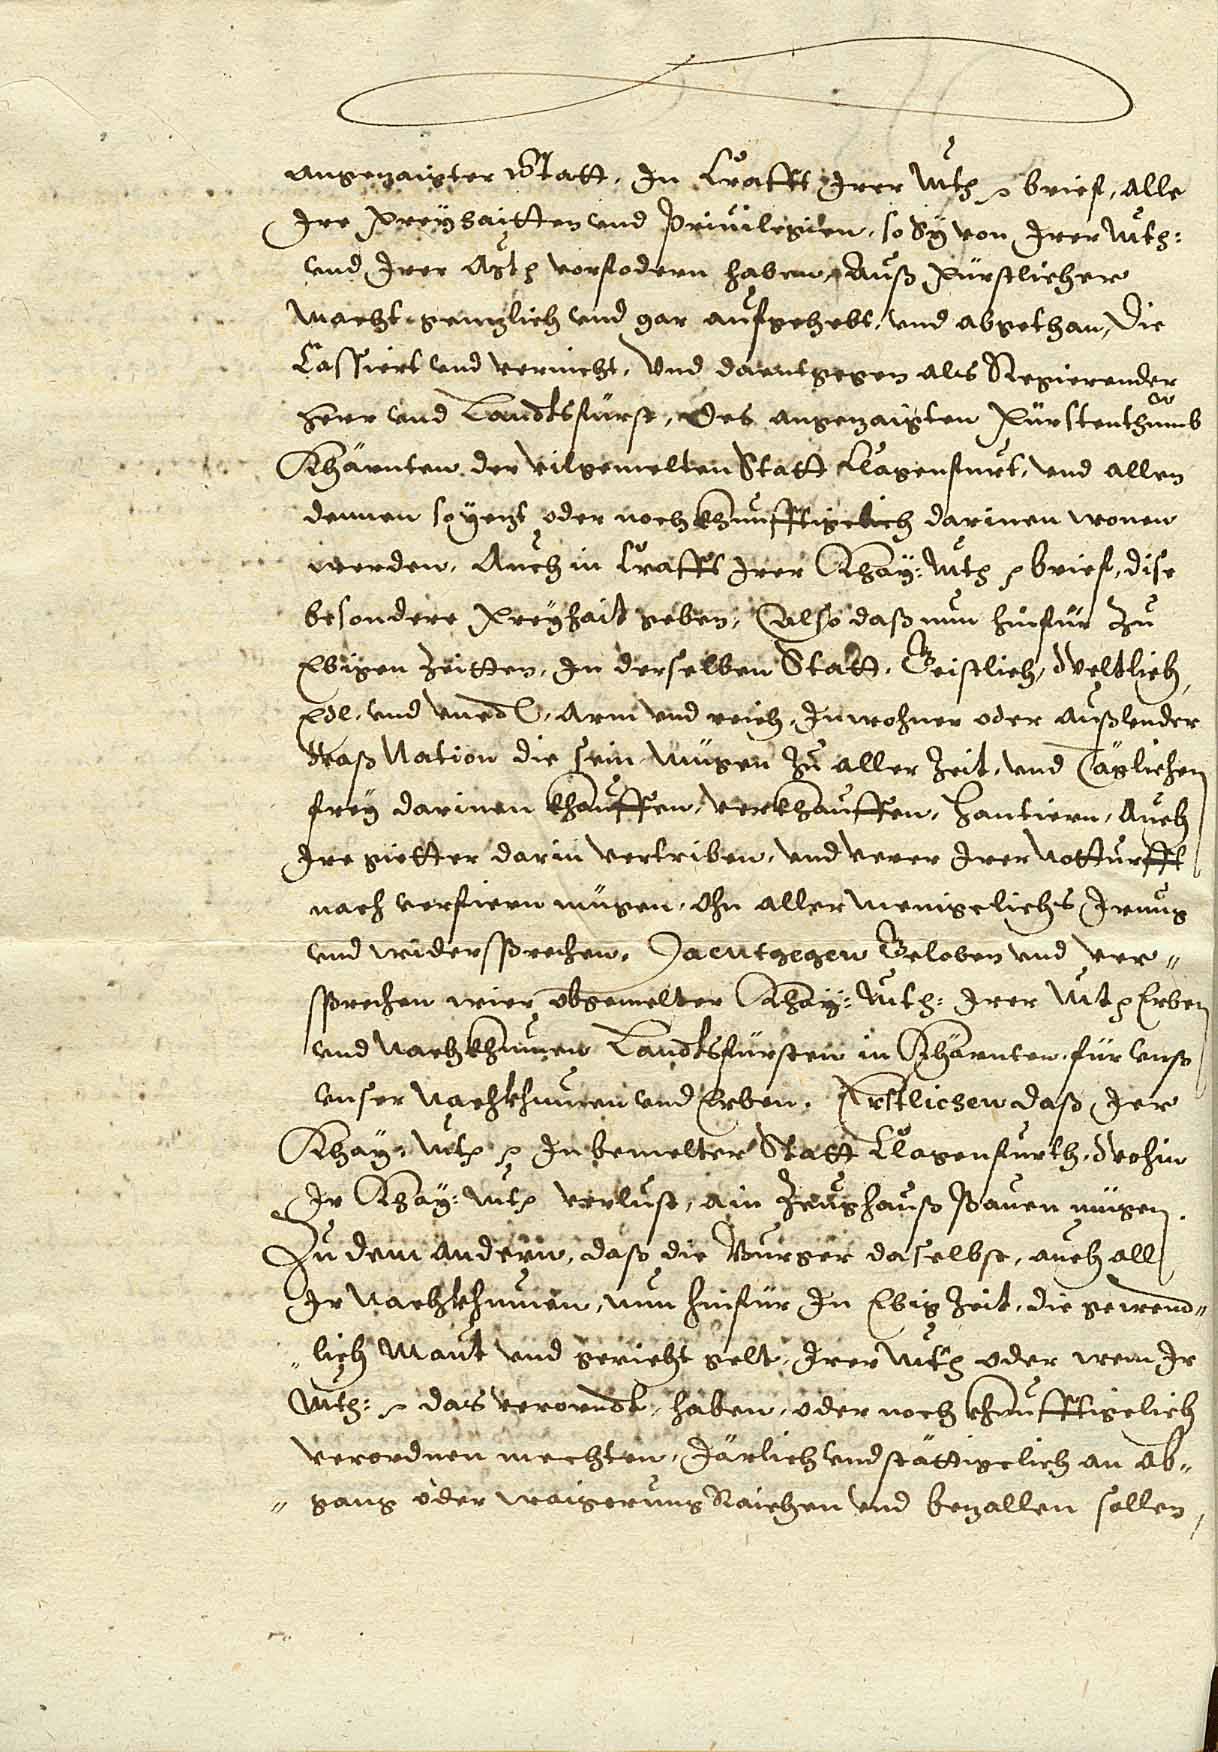 angezaigter Statt, In Crafft Irer Mtt: brief, Alle
Ire Freyhaitten und Priuilegien, so Sy von Irer Mtt:
und Irer Mtt: vorfodern haben, Auß Fürstlicher
Macht, gentzlich und gar aufgehebt, und abgethan, Die
Cassiert und vernicht, Und daentgegen als Regierender
Herr und Landtsfürst, Des angezaigten Fürstenthumb
Khärnten, der vilgemelten Statt Clagenfurt, und allen
dennen so yezt oder noch khunfftigclich darinen wonen
werden, Auch in Crafft Irer Khay: Mtt: brief, dise
besondere Freyhait geben, Also daß nun hinfür Zu
Ebigen Zeitten, In derselben Statt, Geistlich, Weltlich,
Edl, und unedl, Arm und reich, Inwohner oder Außlender
Waß Nation die sein mügen Zu aller Zeit, und Täglichen
frey darinen khauffen, verkhauffen, hantiern, Auch
Ire gietter darin vertriben, und verer Irer Notturfft
nach verfiern mügen, Ohn aller menigclichs Irrung
und widersprechen. Daentgegen Geloben und ver-
sprechen wier obgemelter Khay: Mtt: Irer Mtt: Erben
und Nachkhumen Landtsfürsten in Khärnten, für unß
unser Nachkhumen und Erben. Erstlichen daß Ier
Khay: Mtt: In bemelter Statt Clagenfurth, Wohin
Ir Khay: Mtt: verlust, ain Zeughauß Bauen mügen.
Zu dem Andern, daß die Burger daselbst, auch all
Ir Nachkhumen, nun hinfür In Ebig Zeit, die gewend-
lich Maut und gericht gelt, Irer Mtt: oder wem Ir
Mtt: das verorndt, haben, oder noch khunfftigclich
verordnen mechten, Järlich und stättigclich an Ab-
gang oder waigerung Raichen und bezallen sollen,